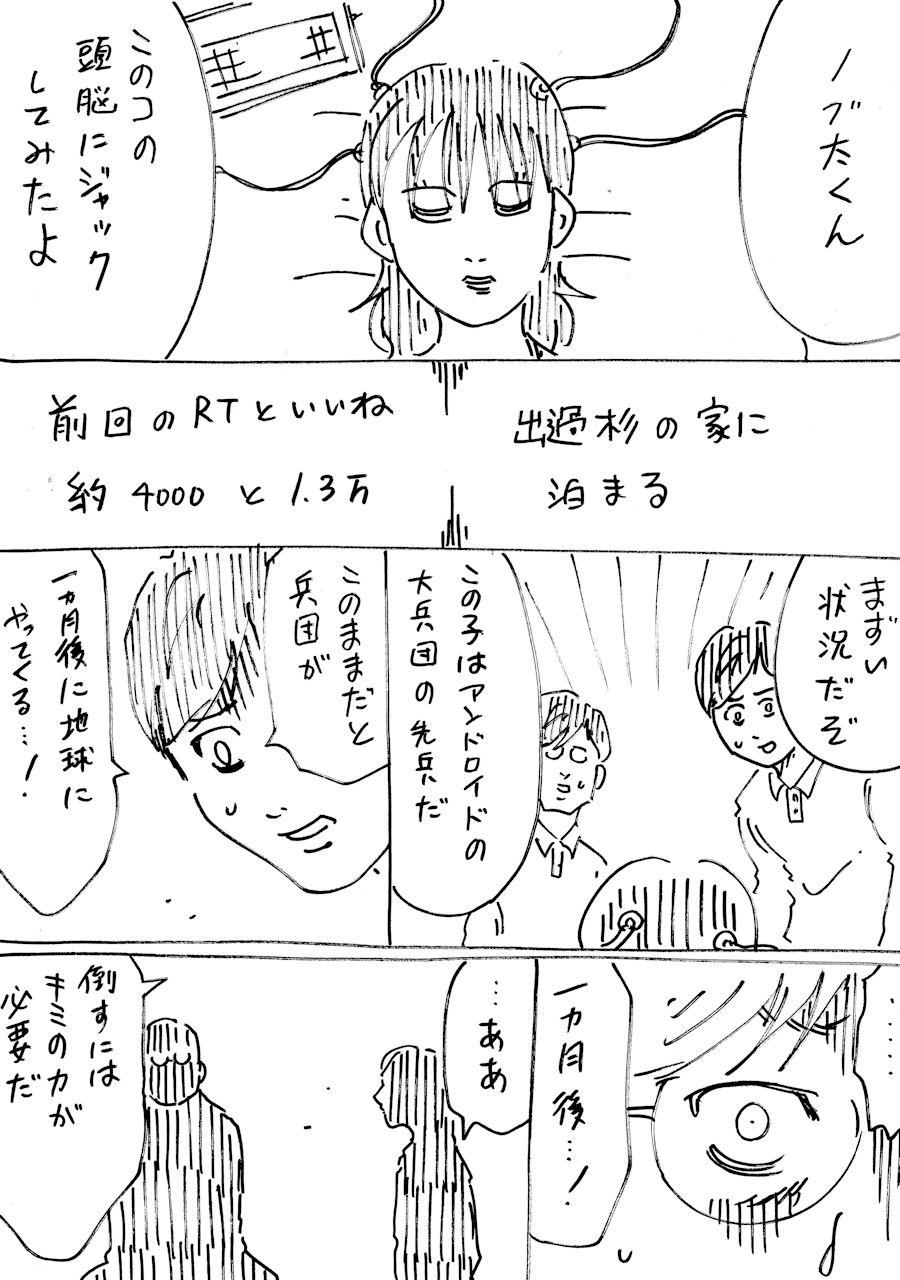 ノブ太くん
このコの
頭脳にジャック
してみたよ
出過杉の家に
泊まる
前回のRTといいね
約4000と1.3万
まずい
状況だぞ
この子はアンドロイドの
大兵団の先兵だ
このままだと
兵団が
一カ月後に地球に
やってくる…!
……
一カ月後…!
…ああ
倒すには
キミの力が
必要だ